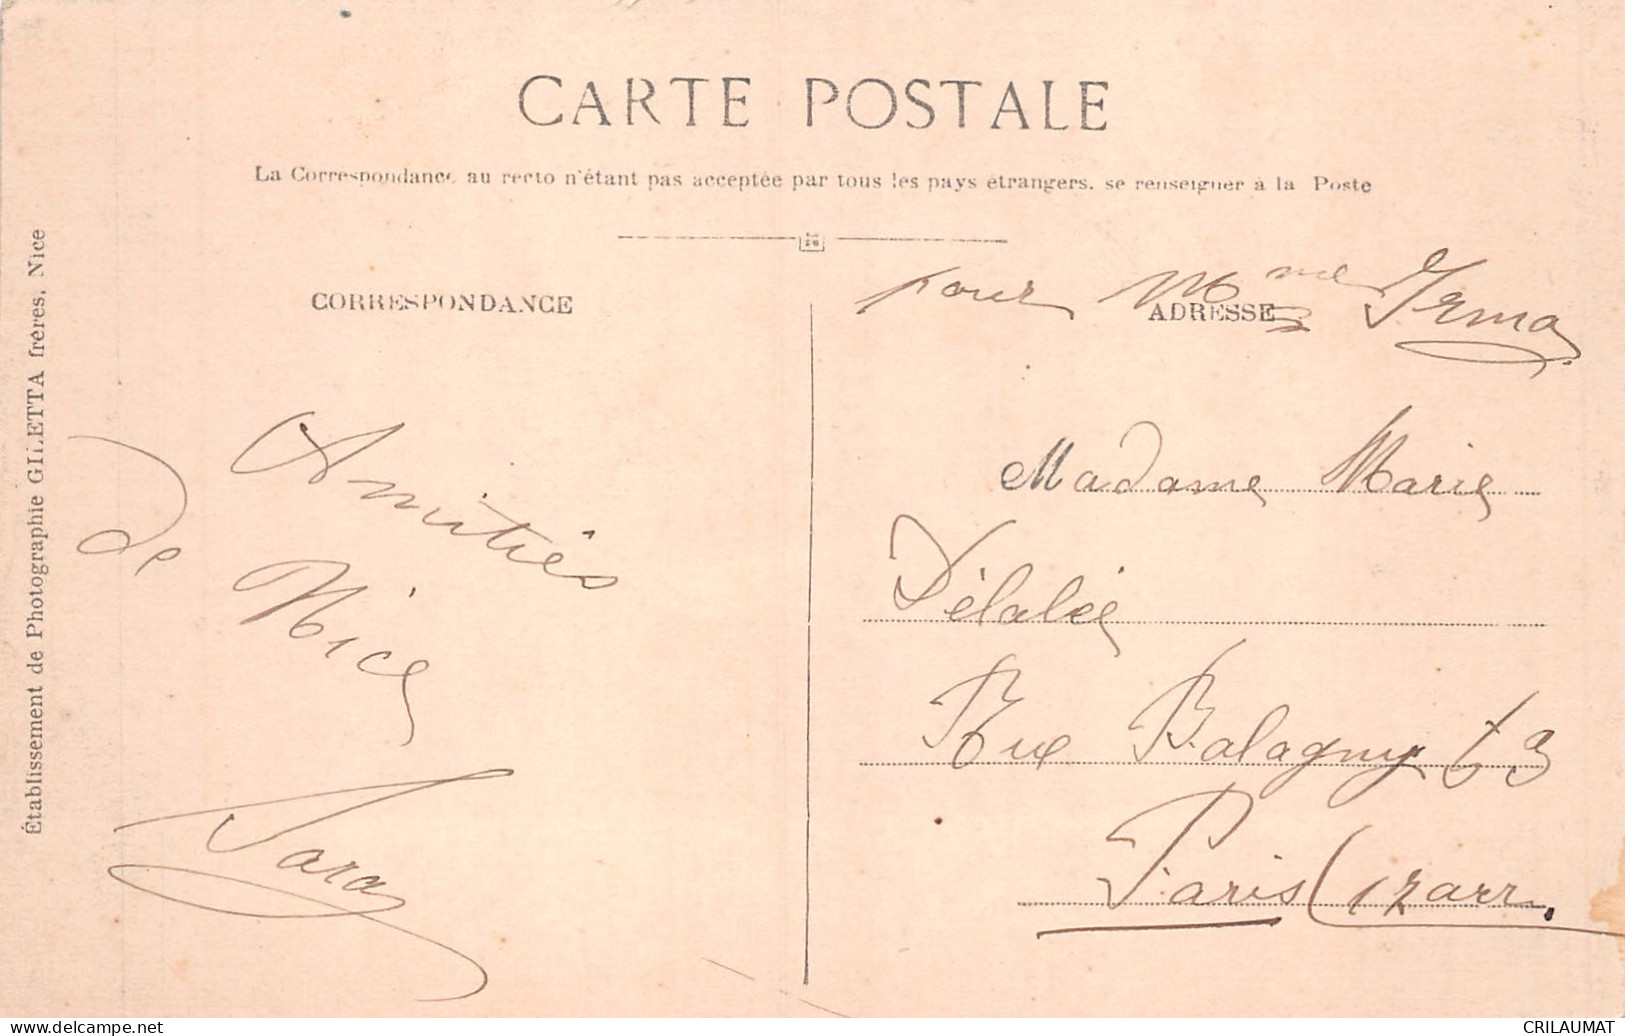 CARTE POSTALE
La Correspondance au recto n'étant pas acceptée par tous les pays étrangers, se renseigner à la Poste
CORRESPONDANCE
Amitiés
de Nice
ADRESSE
pour Mme Irma
Madame Marie
Délalée
Rue Balagny 63
Paris (17 arr.
Établissement de Photographie GILETTA frères, Nice
CRILAUMAT